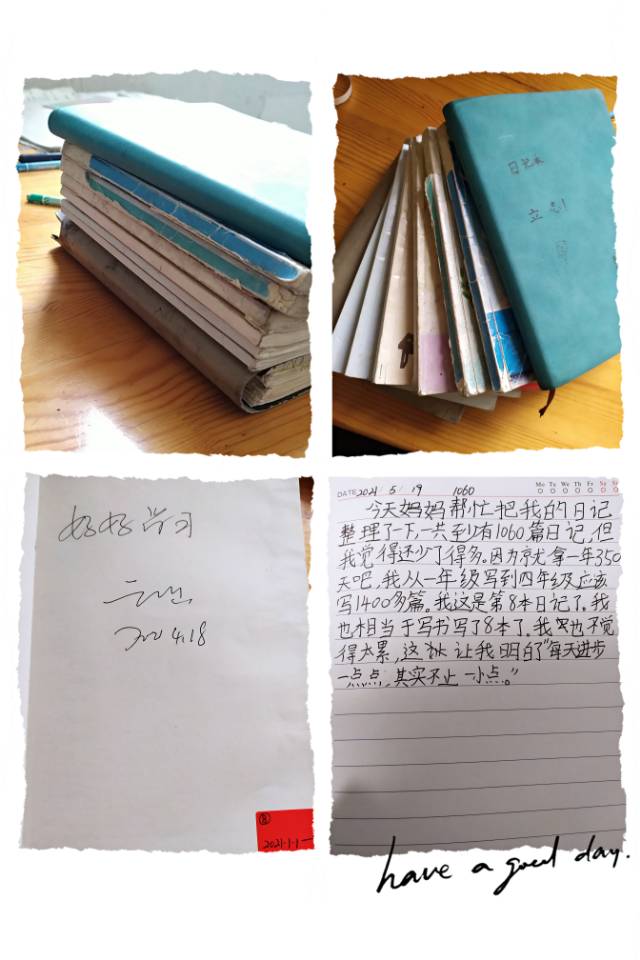 日记本
立
好好学习
2021 4.18
⑧
2021.1.1—
DATE 2021 / 5 / 19 1060 Mo Tu We Th Fr Sa Su
今天妈妈帮忙把我的日记
整理了一下,一共至少有1060篇日记,但
我觉得还少了得多。因为京尤拿一年350
天吧,我从一年级写到四年级应该
写1400多篇。我这是第8本日记了,我
也相当于写书写了8本了。我也不觉
得太累,这让我明白了“每天进步
一点点,其实不止一小点。”
have a good day.